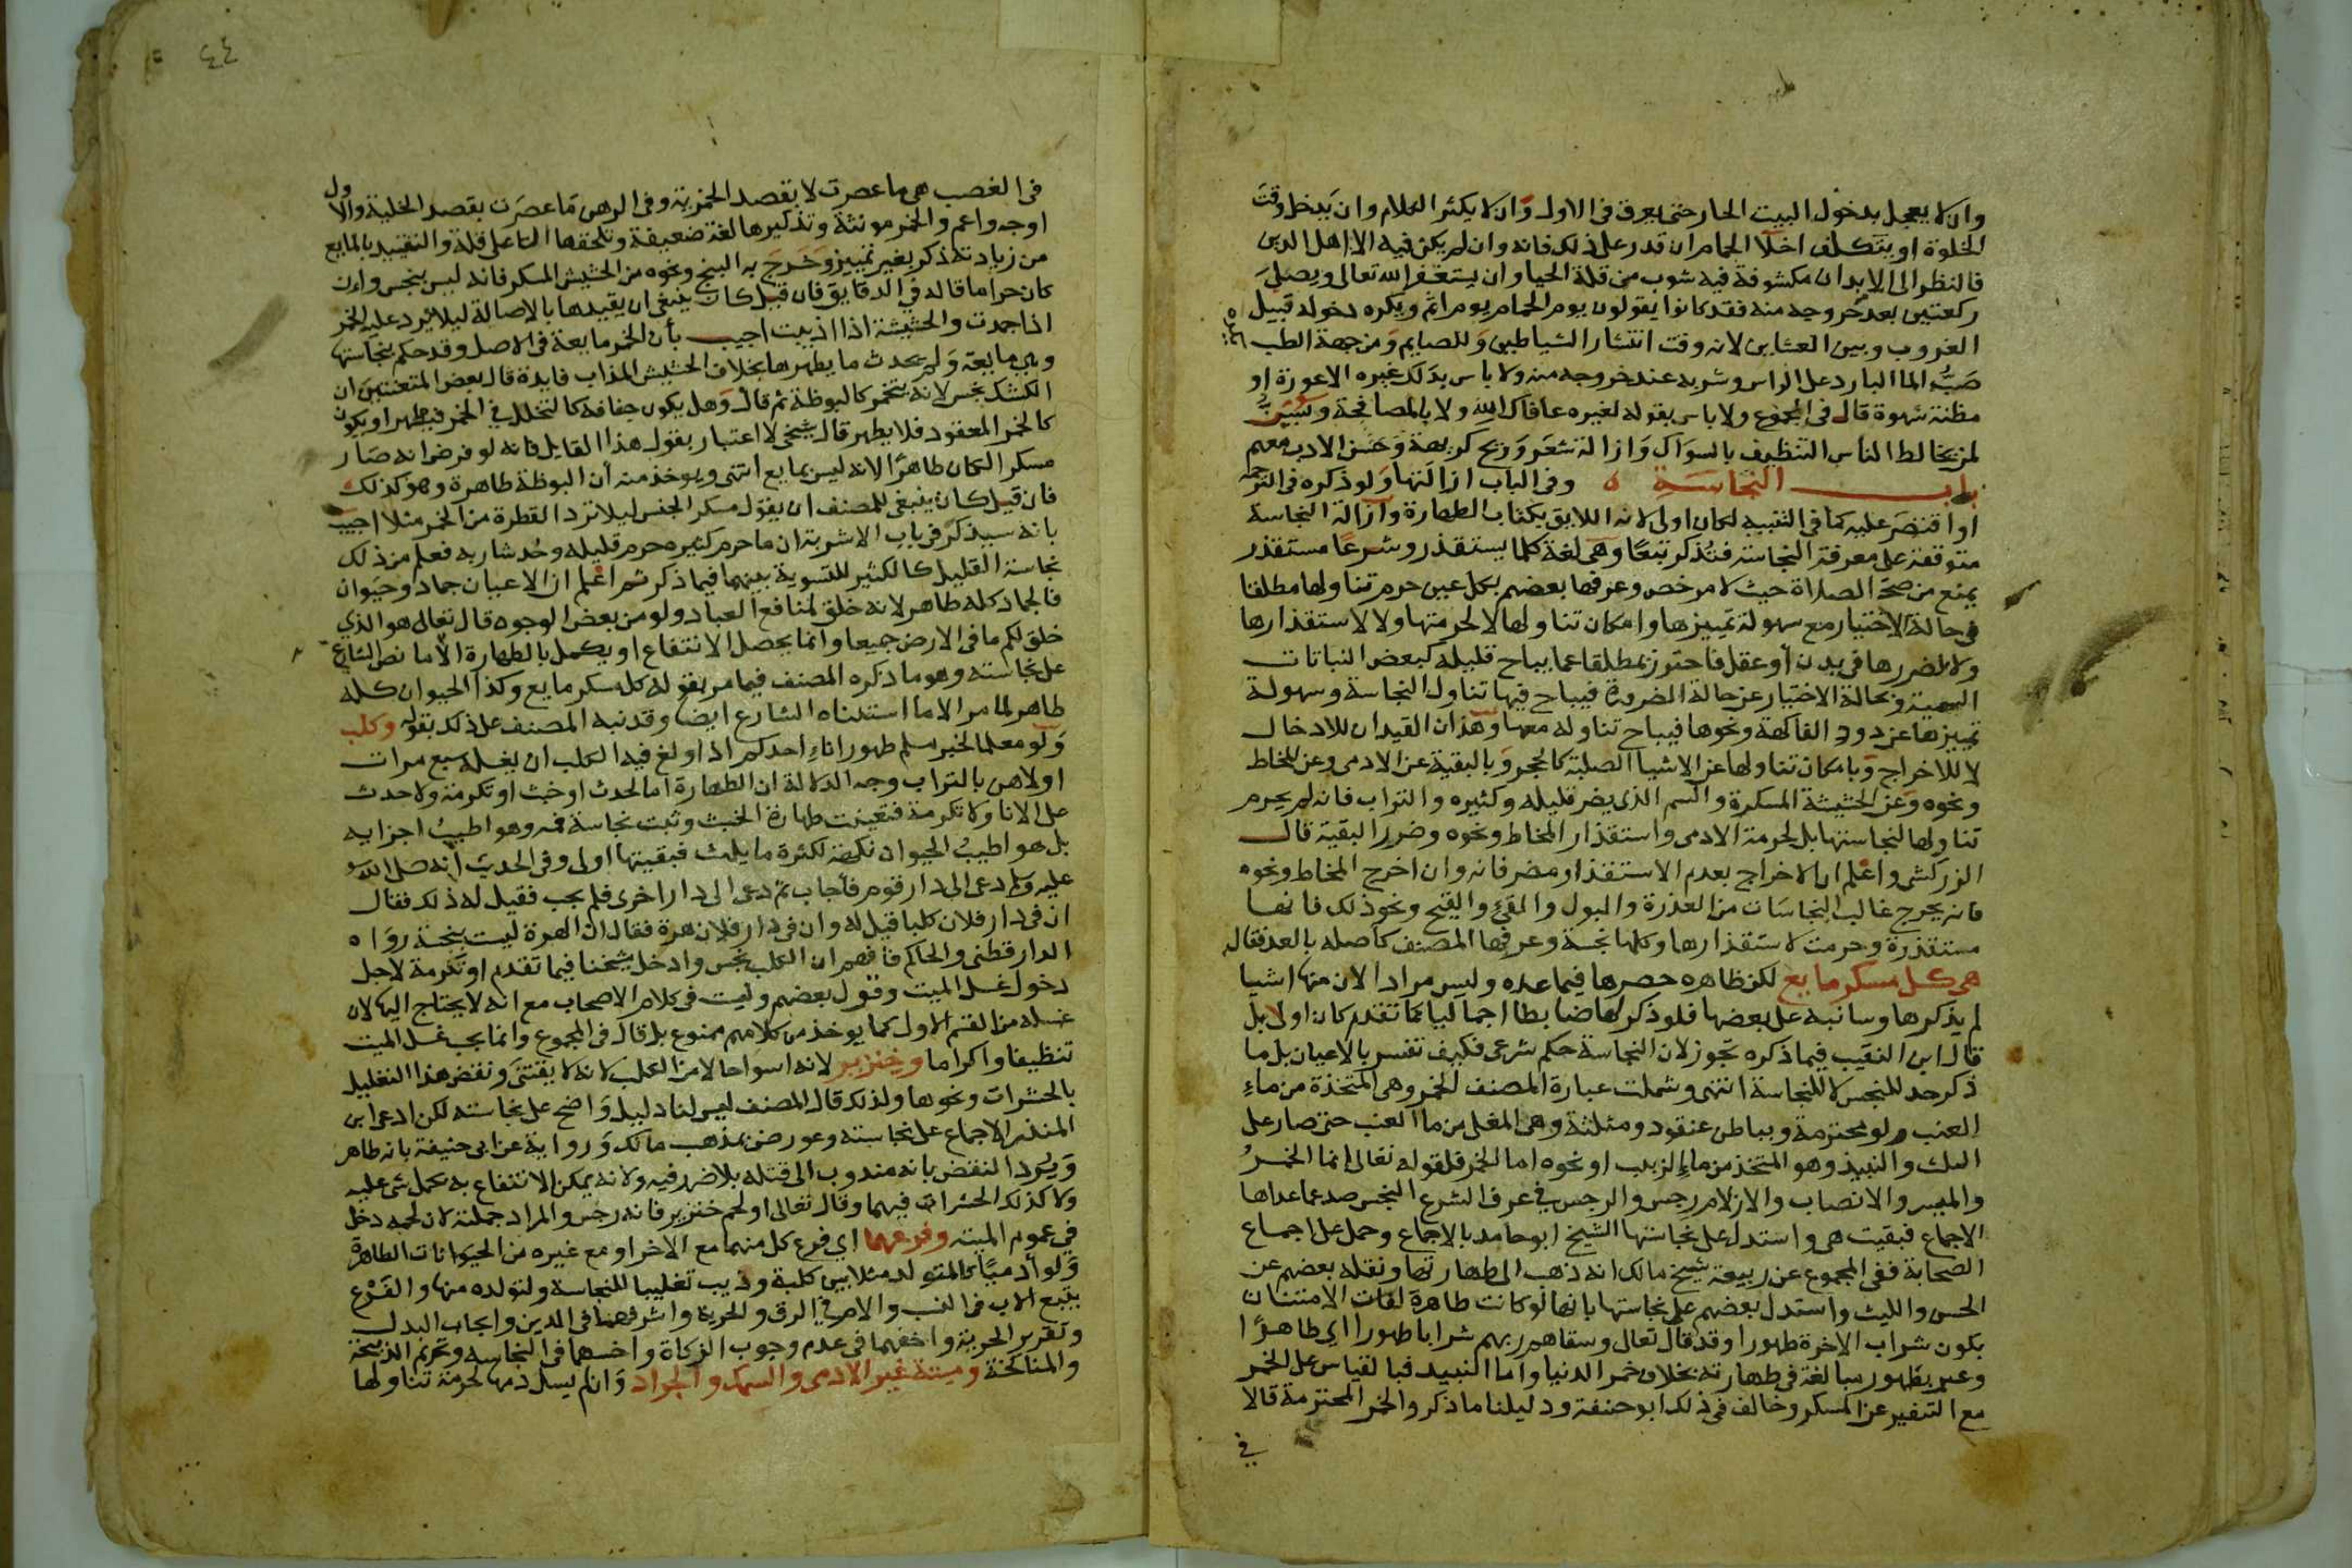 وان لا يعجل بدخول البيت الحار حتى يعرق في الاول وان لا يكثر الكلام وان يدخل وقت
الخلوة او يتكلف اخلا الحمام ان قدر على ذلك فانه وان لم يكن فيه الا اهل الدين
فالنظر الى الابدان مكشوفة فيه شوب من قلة الحيا وان يستغفر الله تعالى ويصلي
ركعتين بعد خروجه منه فقد كانوا يقولون يوم الحمام يوم اثم ويكره دخوله قبيل
الغروب وبين العشاين لانه وقت انتشار الشياطين وللصايم ومن جهة الطب
صب الما البارد على الراس وشربه عند خروجه منه ولا باس بدلك غيره الا عورة او
مظنة شهوة قال في المجموع ولا باس بقوله لغيره عافاك الله ولا بالمصافحة ويسن
لمن يخالط الناس التنظيف بالسواك وازالة شعر وريح كريهة وحسن الادب معهم
باب النجاسة ه وفي الباب ازالتها ولو ذكره في الترجمة
او اقتصر عليه كما في التنبيه لكان اولى لانه اللايق بكتاب الطهارة وازالة النجاسة
متوقفة على معرفة النجاسة فتذكر تبعا وهي لغة كلما يستقذر وشرعا مستقذر
يمنع من صحة الصلاة حيث لا مرخص وعرفها بعضهم بكل عين حرم تناولها مطلقا
في حالة الاختيار مع سهولة تمييزها وامكان تناولها لا لحرمتها ولا لاستقذارها
ولا لضررها في بدن او عقل فاحترز بمطلقا عما يباح قليله كبعض النباتات
السمية وبحالة الاختيار عن حالة الضرورة فيباح فيها تناول النجاسة وسهولة
تمييزها عن دود الفاكهة ونحوها فيباح تناوله معها وهذان القيدان للادخال
لا للاخراج وبامكان تناولها عن الاشيا الصلبة كالحجر وبالبقية عن الادمي وعن المخاط
ونحوه وعن الحشيشة المسكرة والسم الذي يضر قليله وكثيره والتراب فانه لم يحرم
تناولها لنجاستها بل لحرمة الادمي واستقذار المخاط ونحوه وضرر البقية قال
الزركشي واعلم ان الاخراج بعدم الاستقذار مضر فانه وان اخرج المخاط ونحوه
فانه يخرج غالب النجاسات من العذرة والبول والقي والقيح ونحو ذلك فانها
مستقذرة وحرمت لاستقذارها وكلها نجسة وعرفها المصنف كاصله بالعد فقال
هي كل مسكر مايع لكن ظاهره حصرها فيما عده وليس مرادا لان منها اشيا
لم يذكرها وسانبه على بعضها فلو ذكر لها ضابطا اجماليا كما تقدم كان اولى بل
قال ابن النقيب فيما ذكره تجوز لان النجاسة حكم شرعي فكيف تفسر بالاعيان بل ما
ذكر حد للنجس لا للنجاسة انتهى وشملت عبارة المصنف الخمر وهي المتخذة من ماء
العنب ولو محترمة وبباطن عنقود ومثلثة وهي المغلي من ما العنب حتى صار على
الثلث والنبيذ وهو المتخذ من ماء الزبيب او نحوه اما الخمر فلقوله تعالى انما الخمر
والميسر والانصاب والازلام رجس والرجس في عرف الشرع النجس صد عما عداها
الاجماع فبقيت هي واستدل على نجاستها الشيخ ابو حامد بالاجماع وحمل على اجماع
الصحابة ففي المجموع عن ربيعة شيخ مالك انه ذهب الى طهارتها ونقله بعضهم عن
الحسن والليث واستدل بعضهم على نجاستها بانها لو كانت طاهرة لفات الامتنان
بكون شراب الاخرة طهورا وقد قال تعالى وسقاهم ربهم شرابا طهورا اي طاهرا
وعبر بطهور مبالغة في طهارته بخلاف خمر الدنيا واما النبيذ فبالقياس على الخمر
مع التنفير عن المسكر وخالف في ذلك ابو حنيفة ودليلنا ما ذكر والخمر المحترمة قالا
في
٤٤
في الغصب هي ما عصرت لا بقصد الخمرية وفي الرهن ما عصرت بقصد الخلية والاول
اوجه واعم والخمر مونثة وتذكيرها لغة ضعيفة وتلحقها التا على قلة والتقييد بالمايع
من زيادته ذكر بغير تمييز وخرج به البنج ونحوه من الحشيش المسكر فانه ليس بنجس وان
كان حراما قاله في الدقايق فان قيل كان ينبغي ان يقيدها بالاصالة ليلا ترد عليه الخمر
اذا جمدت والحشيشة اذا اذيبت اجيب بان الخمر مايعة في الاصل وقد حكم بنجاستها
وهي مايعة ولم يحدث ما يطهرها بخلاف الحشيش المذاب فايدة قال بعض المتعنتين ان
الكشك نجس لانه يتخمر كالبوظة ثم قال وهل يكون جفافه كالتخلل في الخمر فيطهر او يكون
كالخمر المعقود فلا يطهر قال شيخي لا اعتبار بقول هذا القايل فانه لو فرض انه صار
مسكرا لكان طاهرا لانه ليس بمايع انتهى ويوخذ منه ان البوظة طاهرة وهو كذلك
فان قيل كان ينبغي للمصنف ان يقول مسكر الجنس ليلا ترد القطرة من الخمر مثلا اجيب
بانه سيذكر في باب الاشربة ان ما حرم كثيره حرم قليله وحد شاربه فعلم من ذلك
نجاسة القليل كالكثير للتسوية بينهما فيما ذكر ثم اعلم ان الاعيان جماد وحيوان
فالجماد كله طاهر لانه خلق لمنافع العباد ولو من بعض الوجوه قال تعالى هو الذي
خلق لكم ما في الارض جميعا وانما يحصل الانتفاع او يكمل بالطهارة الا ما نص الشارع
على نجاسته وهو ما ذكره المصنف فيما مر بقوله كل مسكر مايع وكذا الحيوان كله
طاهر لما مر الا ما استثناه الشارع ايضا وقد نبه المصنف على ذلك بقوله وكلب
ولو معلما لخبر مسلم طهور اناء احدكم اذا ولغ فيه الكلب ان يغسله سبع مرات
اولاهن بالتراب وجه الدلالة ان الطهارة اما لحدث او خبث او تكرمة ولا حدث
على الانا ولا تكرمة فتعينت طهارة الخبث وثبت نجاسة فمه وهو اطيب اجزايه
بل هو اطيب الحيوان نكهة لكثرة ما يلهث فبقيتها اولى وفي الحديث انه صلى الله
عليه وسلم دعي الى دار قوم فاجاب ثم دعي الى دار اخرى فلم يجب فقيل له ذلك فقال
ان في دار فلان كلبا قيل له وان في دار فلان هرة فقال ان الهرة ليست بنجسة رواه
الدارقطني والحاكم فافهم ان الكلب نجس وادخل شيخنا فيما تقدم او تكرمة لاجل
دخول غسل الميت وقول بعضهم وليست في كلام الاصحاب مع انه لا يحتاج اليها لان
غسله من القسم الاول كما يوخذ من كلامهم ممنوع بل قال في المجموع وانما يجب غسل الميت
تنظيفا واكراما وخنزير لانه اسوا حالا من الكلب لانه لا يقتنى ونقض هذا التعليل
بالحشرات ونحوها ولذلك قال المصنف ليس لنا دليل واضح على نجاسته لكن ادعى ابن
المنذر الاجماع على نجاسته وعورض بمذهب مالك ورواية عن ابي حنيفة بانه طاهر
ويرد النقض بانه مندوب الى قتله بلا ضرر فيه ولانه يمكن الانتفاع به بحمل شي عليه
ولا كذلك الحشرات فيهما وقال تعالى او لحم خنزير فانه رجس والمراد جملته لان لحمه دخل
في عموم الميتة وفرعهما اي فرع كل منهما مع الاخر او مع غيره من الحيوانات الطاهرة
ولو ادميا كالمتولد مثلا بين كلبة وذيب تغليبا للنجاسة ولتولده منها والفرع
يتبع الاب في النسب والام في الرق والحرية واشرفهما في الدين وايجاب البدل
وتقرير الجزية واخفهما في عدم وجوب الزكاة واخسهما في النجاسة وتحريم الذبيحة
والمناكحة وميتة غير الادمي والسمك والجراد وان لم يسل دمها لحرمة تناولها